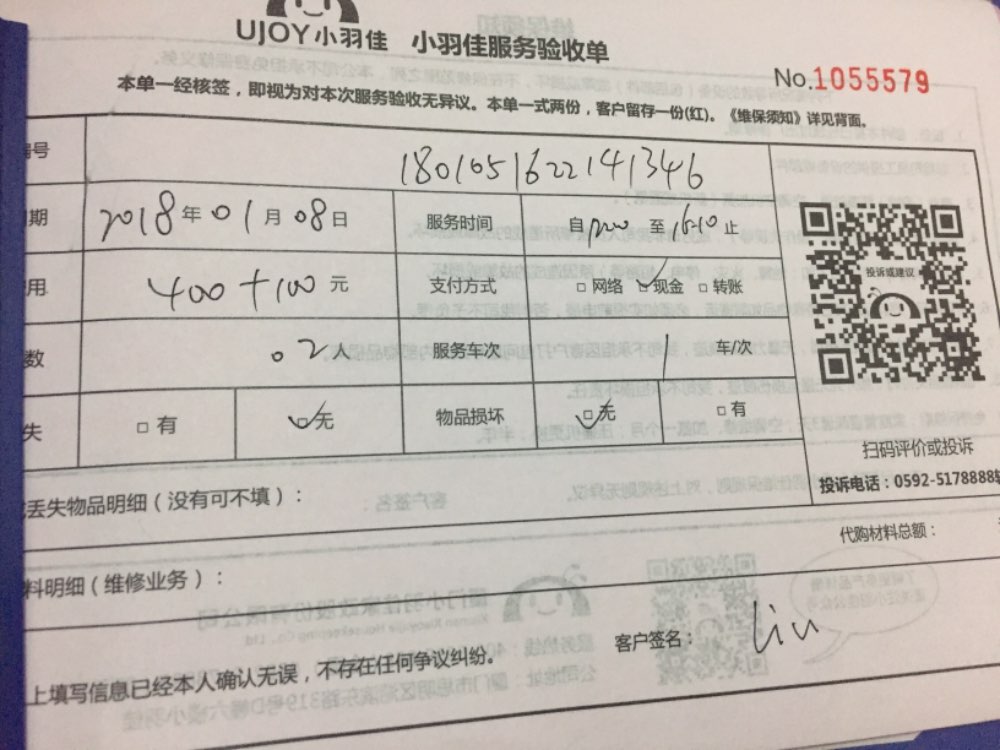 UJOY小羽佳 小羽佳服务验收单
No.1055579
本单一经核签，即视为对本次服务验收无异议。本单一式两份，客户留存一份(红)。《维保须知》详见背面。
号 1801051622141346
期 2018年01月08日 服务时间 自 至1610止
用 400+100元 支付方式 □网络 ☑现金 □转账
投诉或建议
数 02人 服务车次 1 车/次
失 □有 ☑无 物品损坏 ☑无 □有
扫码评价或投诉
丢失物品明细（没有可不填）：
投诉电话：0592-5178888
代购材料总额：
料明细（维修业务）：
客户签名： Liu
上填写信息已经本人确认无误，不存在任何争议纠纷。